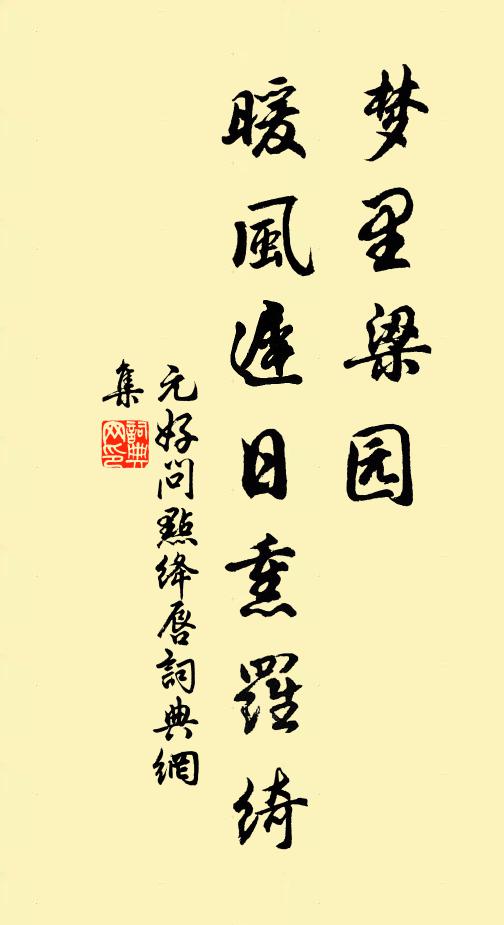 梦里梁园
暖風遲日熏羅綺
元好问點绛唇詞典網
集
詞典网印